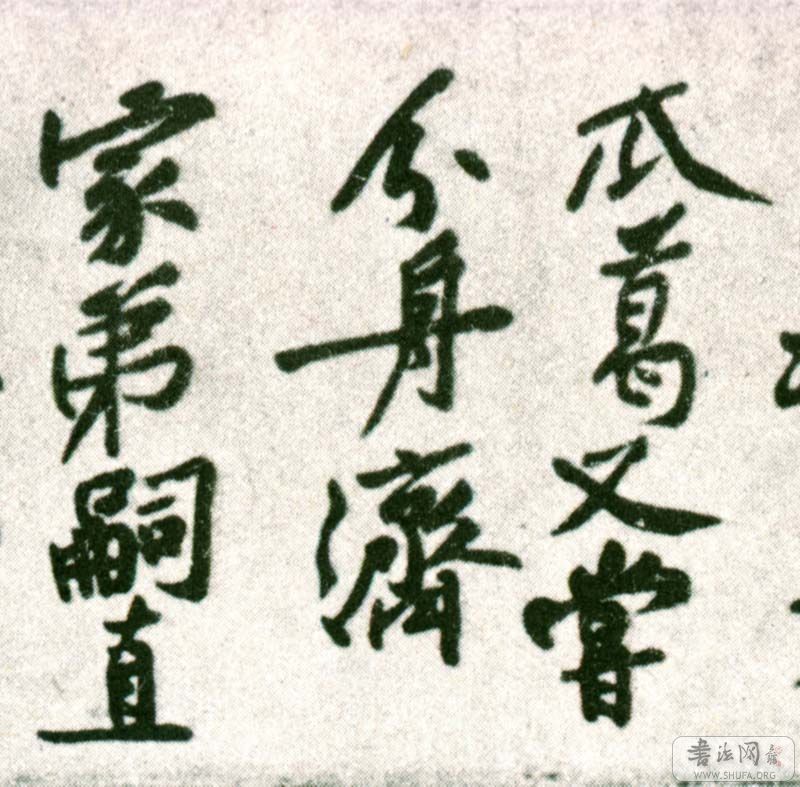 瓜葛又嘗
分舟濟
家弟嗣直
書法网
WWW.SHUFA.ORG